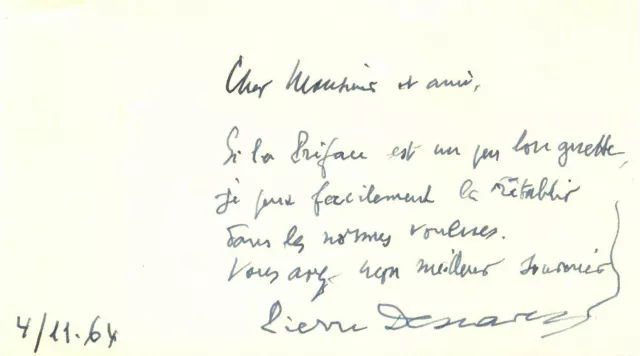 Cher Monsieur et ami,
Si la Préface est un peu longuette,
je peux facilement la rétablir
dans les normes voulues.
Vous avez mon meilleur souvenir
Pierre
4/11.64